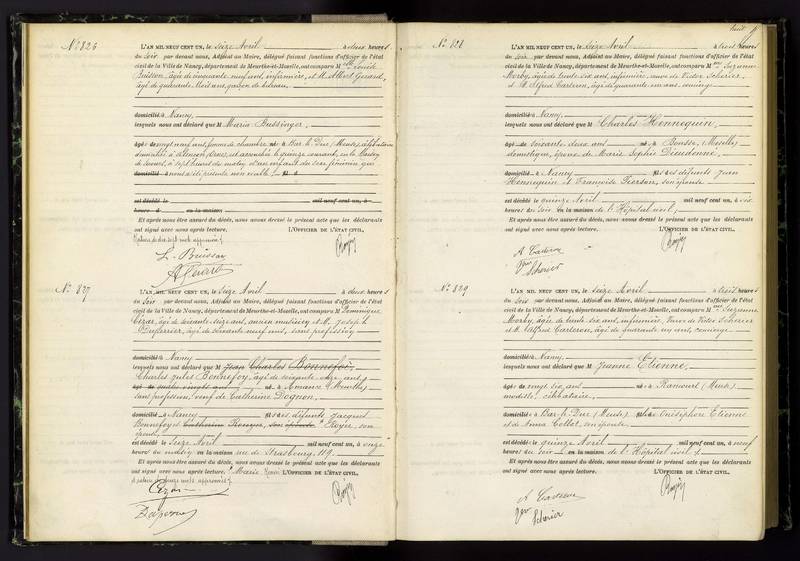 No 826
L'AN MIL NEUF CENT UN, le seize Avril à deux heures
du Soir par devant nous, Adjoint au Maire, délégué faisant fonctions d'officier de l'état
civil de la Ville de Nancy, département de Meurthe-et-Moselle, ont comparu M elle Louise
Buisson, âgée de cinquante neuf ans, infirmière, et M. Albert Gérard,
âgé de quarante trois ans, garçon de bureau
domiciliés à Nancy
lesquels nous ont déclaré que M Maria Bussinger
âgée de vingt neuf ans, femme de chambre née à Bar-le-Duc (Meuse), célibataire
domiciliée à Alençon (Orne), est accouchée le quinze courant, en la Maison
de secours, à sept heures du matin, d'un enfant du sexe féminin qui
domicilié à nous a été présenté non viable
est décédé le mil neuf cent un, à
heure d en la maison
Et après nous être assuré du décès, nous avons dressé le présent acte que les déclarants
ont signé avec nous après lecture. L'OFFICIER DE L'ÉTAT CIVIL.
L. Buisson
A Gérard
No 827
L'AN MIL NEUF CENT UN, le seize Avril à deux heures
du Soir par devant nous, Adjoint au Maire, délégué faisant fonctions d'officier de l'état
civil de la Ville de Nancy, département de Meurthe-et-Moselle, ont comparu M Dominique
Cézar, âgé de soixante seize ans, ancien et M. Joseph
âgé de soixante neuf ans, sans profession
domiciliés à Nancy
lesquels nous ont déclaré que M Jean Charles Bonnefoi
Charles Jules Bonnefoy, âgé de soixante ans
âgé de quatre vingts ans né à Amance (Meurthe)
sans profession, veuf de Catherine Dognon
domicilié à Nancy fils des défunts Jacques
Bonnefoy et Catherine son épouse Royer, son
épouse
est décédé le seize Avril mil neuf cent un, à onze
heures du matin en la maison rue de Strasbourg, 119.
Et après nous être assuré du décès, nous avons dressé le présent acte que les déclarants
ont signé avec nous après lecture. Marie L'OFFICIER DE L'ÉTAT CIVIL.
Cézar
No 828
L'AN MIL NEUF CENT UN, le seize Avril à trois heures
du Soir par devant nous, Adjoint au Maire, délégué faisant fonctions d'officier de l'état
civil de la Ville de Nancy, département de Meurthe-et-Moselle, ont comparu M me Suzanne
âgée de trente six ans, infirmière, veuve de Victor Scherier
et M. Alfred Carteron, âgé de quarante un ans, concierge
domiciliés à Nancy
lesquels nous ont déclaré que M Charles Hennequin
âgé de soixante deux ans né à Bousse (Moselle)
domestique, époux de Marie Sophie Dieudonné
domicilié à Nancy fils des défunts Jean
Hennequin et Françoise Pierson, son épouse
est décédé le quinze Avril mil neuf cent un, à six
heures du Soir en la maison de l'Hôpital civil
Et après nous être assuré du décès, nous avons dressé le présent acte que les déclarants
ont signé avec nous après lecture. L'OFFICIER DE L'ÉTAT CIVIL.
A Carteron
Scherier
No 829
L'AN MIL NEUF CENT UN, le seize Avril à trois heures
du Soir par devant nous, Adjoint au Maire, délégué faisant fonctions d'officier de l'état
civil de la Ville de Nancy, département de Meurthe-et-Moselle, ont comparu M me Suzanne
âgée de trente six ans, infirmière, veuve de Victor Scherier
et M. Alfred Carteron, âgé de quarante un ans, concierge
domiciliés à Nancy
lesquels nous ont déclaré que M Jeanne Étienne
âgée de vingt six ans née à Rancourt (Meuse)
modiste, célibataire
domiciliée à Bar-le-Duc (Meuse) fille de Onésiphore Etienne
et de Anna Collot, son épouse
est décédée le quinze Avril mil neuf cent un, à neuf
heures du soir en la maison de l'Hôpital civil
Et après nous être assuré du décès, nous avons dressé le présent acte que les déclarants
ont signé avec nous après lecture. L'OFFICIER DE L'ÉTAT CIVIL.
A Carteron
Scherier